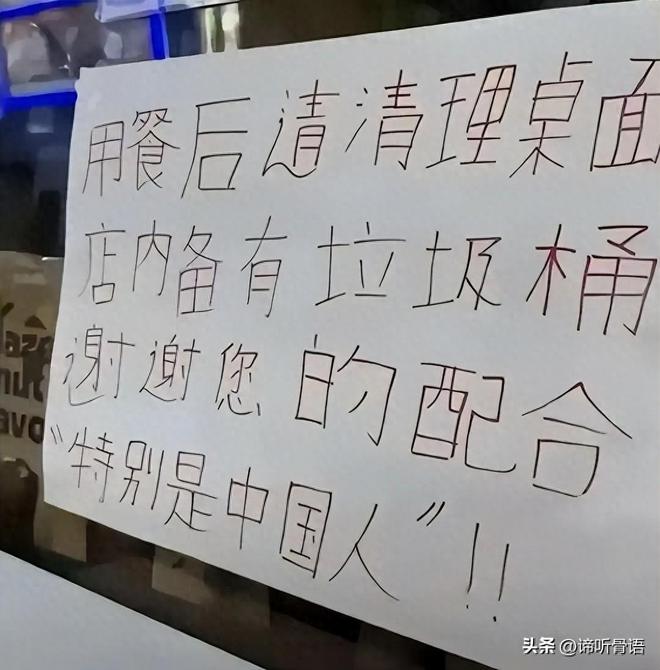 用餐后请清理桌面
店内备有垃圾桶
谢谢您的配合
“特别是中国人”!!
头条 @谛听骨语